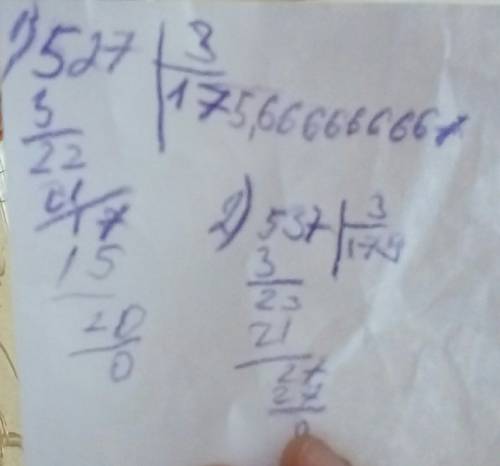 1) 527 | 3
3 | 175,666666667
22
21
17
15
20
0
2) 537 | 3
3 | 179
23
21
27
27
0